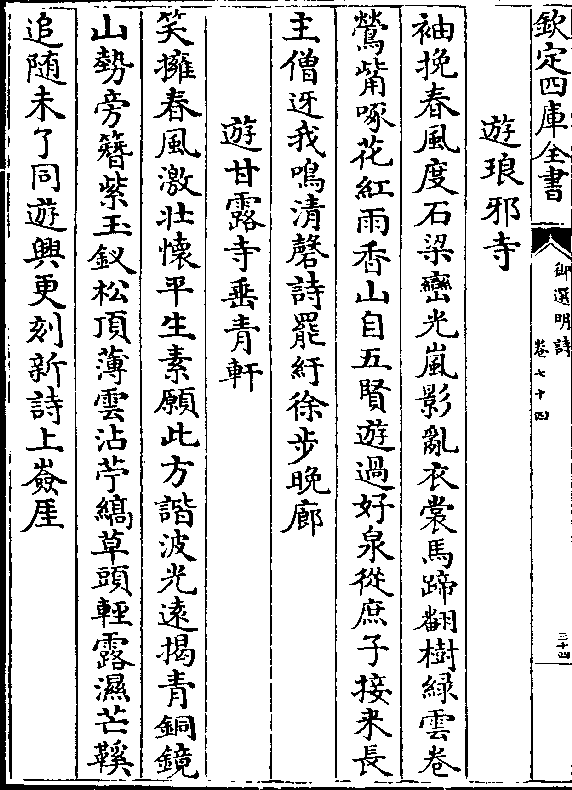 欽定四庫全書
御選明詩
卷七十四
三十四
遊琅邪寺
袖挽春風度石梁巒光嵐影亂衣裳馬蹄翻樹綠雲卷
鶯觜啄花紅雨香山自五賢遊過好泉從庶子接来長
主僧迓我鳴清磬詩罷紆徐步晚廊
遊甘露寺垂青軒
笑擁春風激壯懷平生素願此方諧波光遠揭青銅鏡
山勢旁簪紫玉釵松頂薄雲沾苧縞草頭輕露濕芒鞵
追随未了同遊興更刻新詩上嶮厓